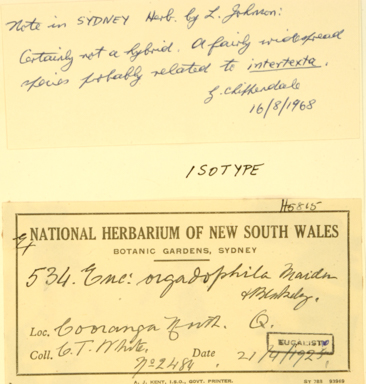 Note in SYDNEY Herb. by L. Johnson:
Certainly not a hybrid. A fairly widespread
species probably related to intertexta.
G. Chippendale
16/8/1968
ISOTYPE
H5815
Ex
NATIONAL HERBARIUM OF NEW SOUTH WALES
BOTANIC GARDENS, SYDNEY
534. Euc: orgadophila Maiden
& Blakely.
Loc. Cooranga North. Q.
EUCALIST
Coll. C. T. White Date 21/4/1923
No 2484
A. J. KENT, I.S.O., GOVT. PRINTER.